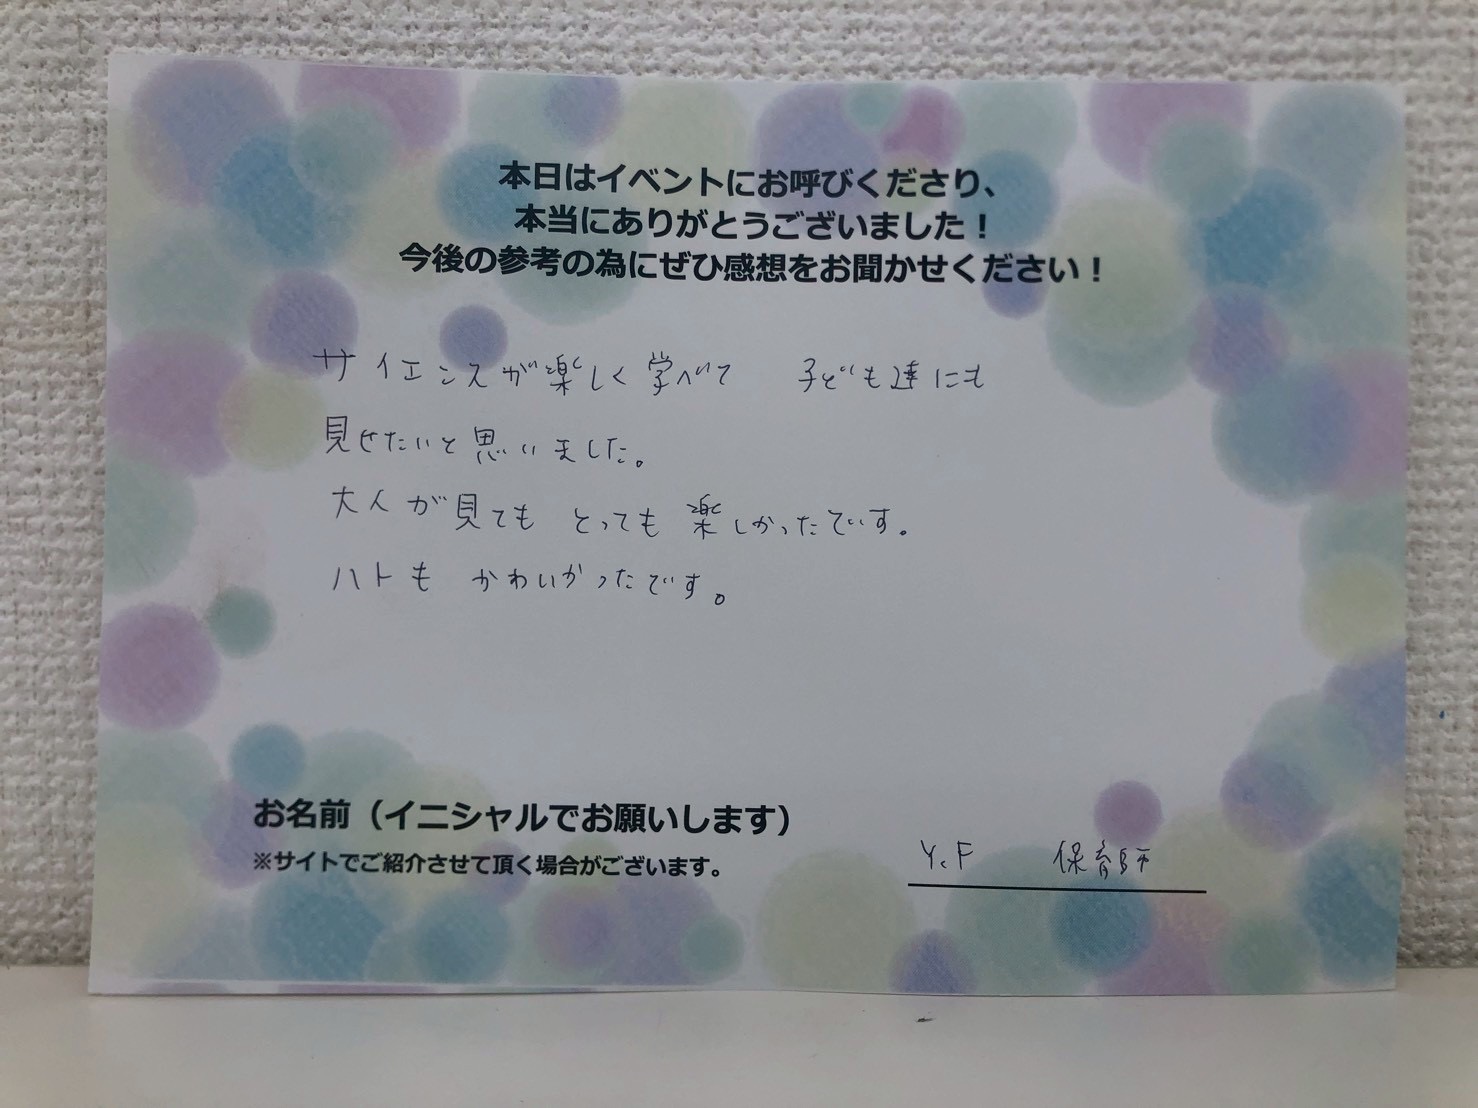 本日はイベントにお呼びくださり、
本当にありがとうございました！
今後の参考の為にぜひ感想をお聞かせください！
サイエンスが楽しく学べて 子ども達にも
見せたいと思いました。
大人が見ても とっても 楽しかったです。
ハトも かわいかったです。
お名前（イニシャルでお願いします）
※サイトでご紹介させて頂く場合がございます。
Y.F 保育師